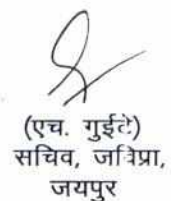 (एच. गुईटे)
सचिव, जविप्रा,
जयपुर